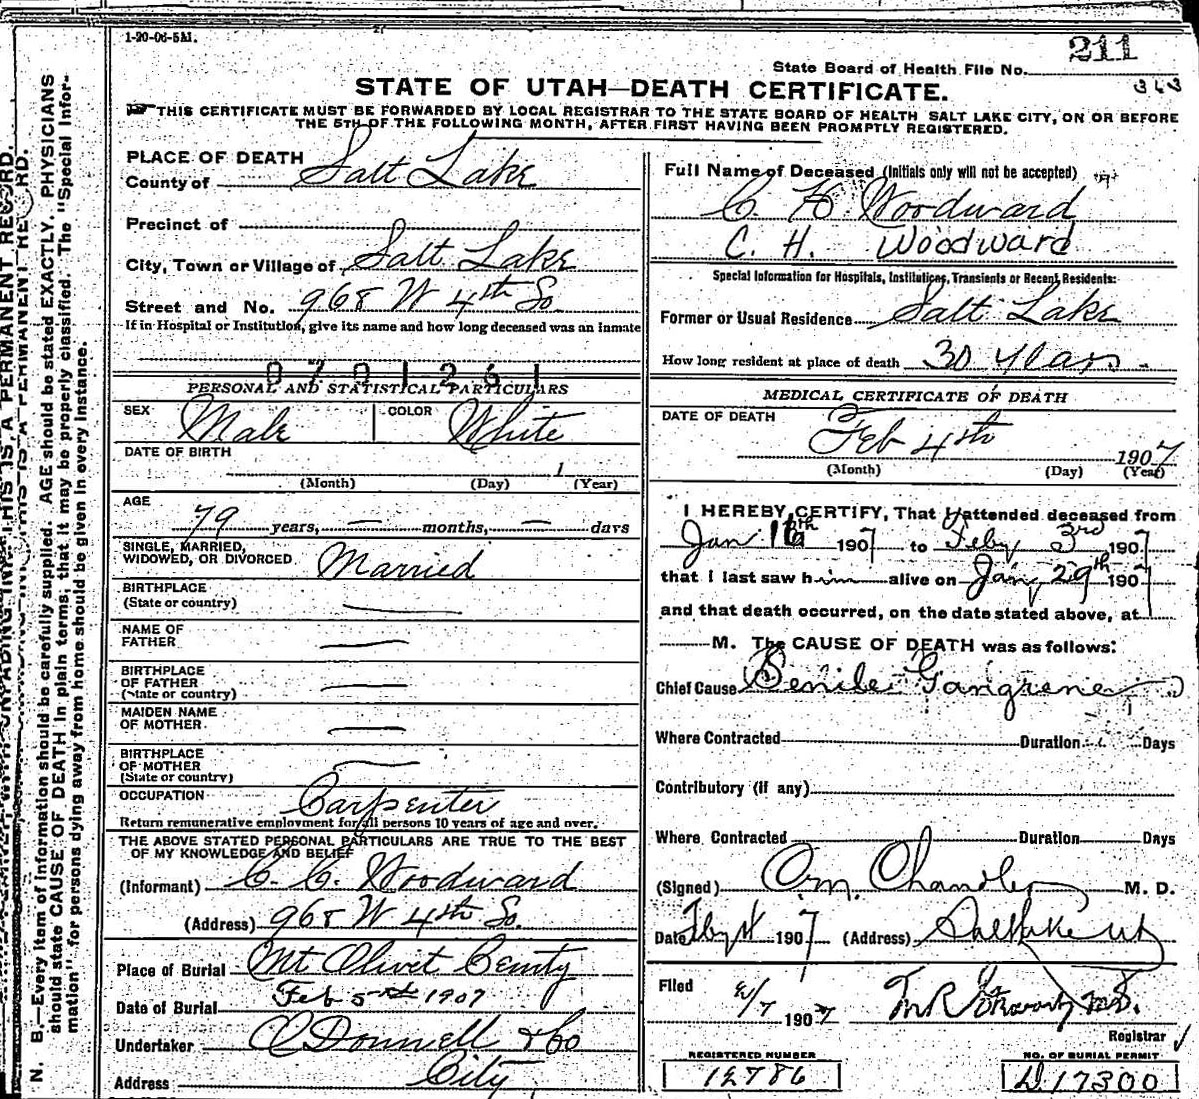 1-20-06-5M.
211
State Board of Health File No.
363
STATE OF UTAH—DEATH CERTIFICATE.
THIS CERTIFICATE MUST BE FORWARDED BY LOCAL REGISTRAR TO THE STATE BOARD OF HEALTH SALT LAKE CITY, ON OR BEFORE
THE 5TH OF THE FOLLOWING MONTH, AFTER FIRST HAVING BEEN PROMPTLY REGISTERED.
N. B.—Every item of information should be carefully supplied. AGE should be stated EXACTLY. PHYSICIANS
should state CAUSE OF DEATH in plain terms, that it may be properly classified. The "Special Infor-
mation" for persons dying away from home should be given in every instance.
PLACE OF DEATH
County of Salt Lake
Precinct of
City, Town or Village of Salt Lake
Street and No. 968 W 4th So.
If in Hospital or Institution, give its name and how long deceased was an inmate
0701261
PERSONAL AND STATISTICAL PARTICULARS
SEX Male COLOR White
DATE OF BIRTH
1
(Month) (Day) (Year)
AGE
79 years, — months, — days
SINGLE, MARRIED,
WIDOWED, OR DIVORCED Married
BIRTHPLACE
(State or country) —
NAME OF
FATHER —
BIRTHPLACE
OF FATHER —
(State or country)
MAIDEN NAME
OF MOTHER —
BIRTHPLACE
OF MOTHER —
(State or country)
OCCUPATION Carpenter
Return remunerative employment for all persons 10 years of age and over.
THE ABOVE STATED PERSONAL PARTICULARS ARE TRUE TO THE BEST
OF MY KNOWLEDGE AND BELIEF
(Informant) C. C. Woodward
(Address) 968 W 4th So.
Place of Burial Mt Olivet
Date of Burial Feb 5th 1907
Undertaker O'Donnell & Co
Address City
Full Name of Deceased (Initials only will not be accepted)
C. H. Woodward
C. H. Woodward
Special Information for Hospitals, Institutions, Transients or Recent Residents:
Former or Usual Residence Salt Lake
How long resident at place of death 30 years
MEDICAL CERTIFICATE OF DEATH
DATE OF DEATH
Feb 4th 1907
(Month) (Day) (Year)
I HEREBY CERTIFY, That I attended deceased from
Jan 16th 1907 to Feby 3rd 1907
that I last saw him alive on Jany 29th 1907
and that death occurred, on the date stated above, at
M. The CAUSE OF DEATH was as follows:
Chief Cause Senile Gangrene
Where Contracted Duration Days
Contributory (if any)
Where Contracted Duration Days
(Signed) Chandler M. D.
Date 1907 (Address) Salt Lake Ut
Filed 2/7 1907
Registrar
REGISTERED NUMBER
12786
NO. OF BURIAL PERMIT
D. 17300